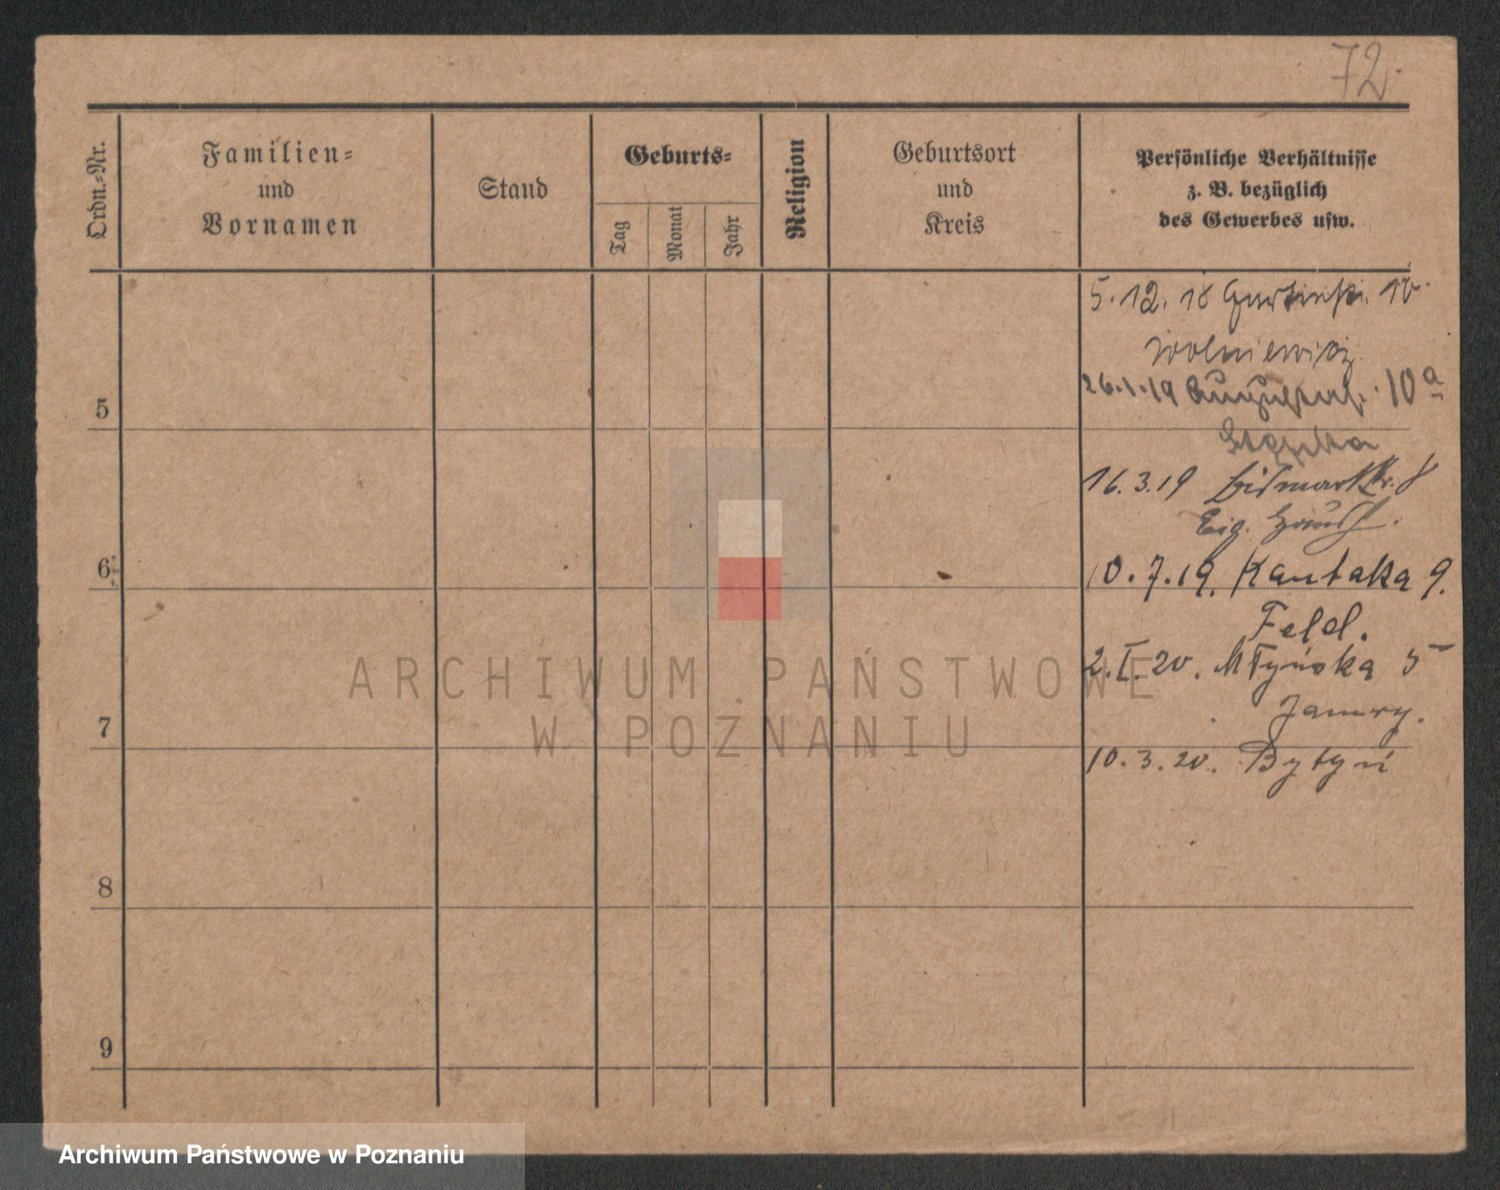 72.
Ordn.-Nr.
Familien-
und
Vornamen
Stand
Geburts-
Tag
Monat
Jahr
Religion
Geburtsort
und
Kreis
Persönliche Verhältnisse
z. B. bezüglich
des Gewerbes usw.
5.12.18 10
Wolniewicz
26.1.19 10a
5
16.3.19 Bismarckstr. 8
Eig.
10.7.19. Kantaka 9.
6
Feld.
2.I.20. Młyńska 5
7
10.3.20. Bytyń
8
9
ARCHIWUM PAŃSTWOWE
W POZNANIU
Archiwum Państwowe w Poznaniu